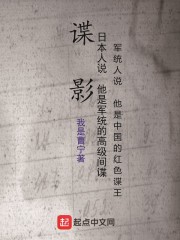 军统人说　他是中国的红色谍王
日本人说　他是军统的高级间谍
谍影
我是曹宁著
起点中文网